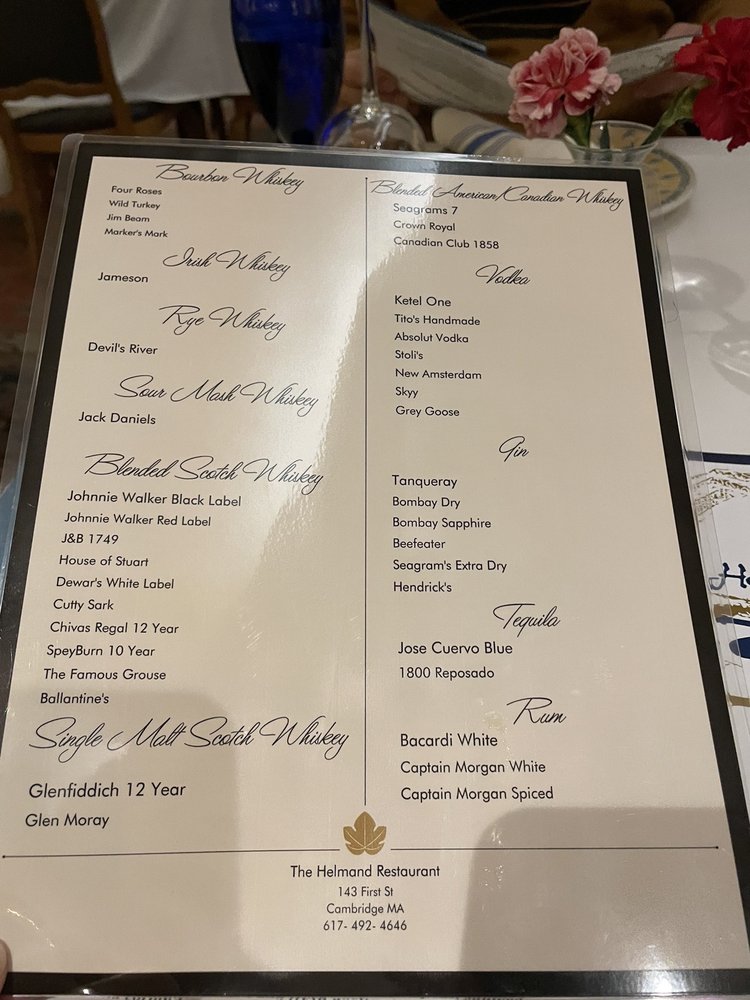 Bourbon Whiskey
Four Roses
Wild Turkey
Jim Beam
Marker's Mark
Irish Whiskey
Jameson
Rye Whiskey
Devil's River
Sour Mash Whiskey
Jack Daniels
Blended Scotch Whiskey
Johnnie Walker Black Label
Johnnie Walker Red Label
J&B 1749
House of Stuart
Dewar's White Label
Cutty Sark
Chivas Regal 12 Year
SpeyBurn 10 Year
The Famous Grouse
Ballantine's
Single Malt Scotch Whiskey
Glenfiddich 12 Year
Glen Moray
Blended American/Canadian Whiskey
Seagrams 7
Crown Royal
Canadian Club 1858
Vodka
Ketel One
Tito's Handmade
Absolut Vodka
Stoli's
New Amsterdam
Skyy
Grey Goose
Gin
Tanqueray
Bombay Dry
Bombay Sapphire
Beefeater
Seagram's Extra Dry
Hendrick's
Tequila
Jose Cuervo Blue
1800 Reposado
Rum
Bacardi White
Captain Morgan White
Captain Morgan Spiced
The Helmand Restaurant
143 First St
Cambridge MA
617- 492- 4646